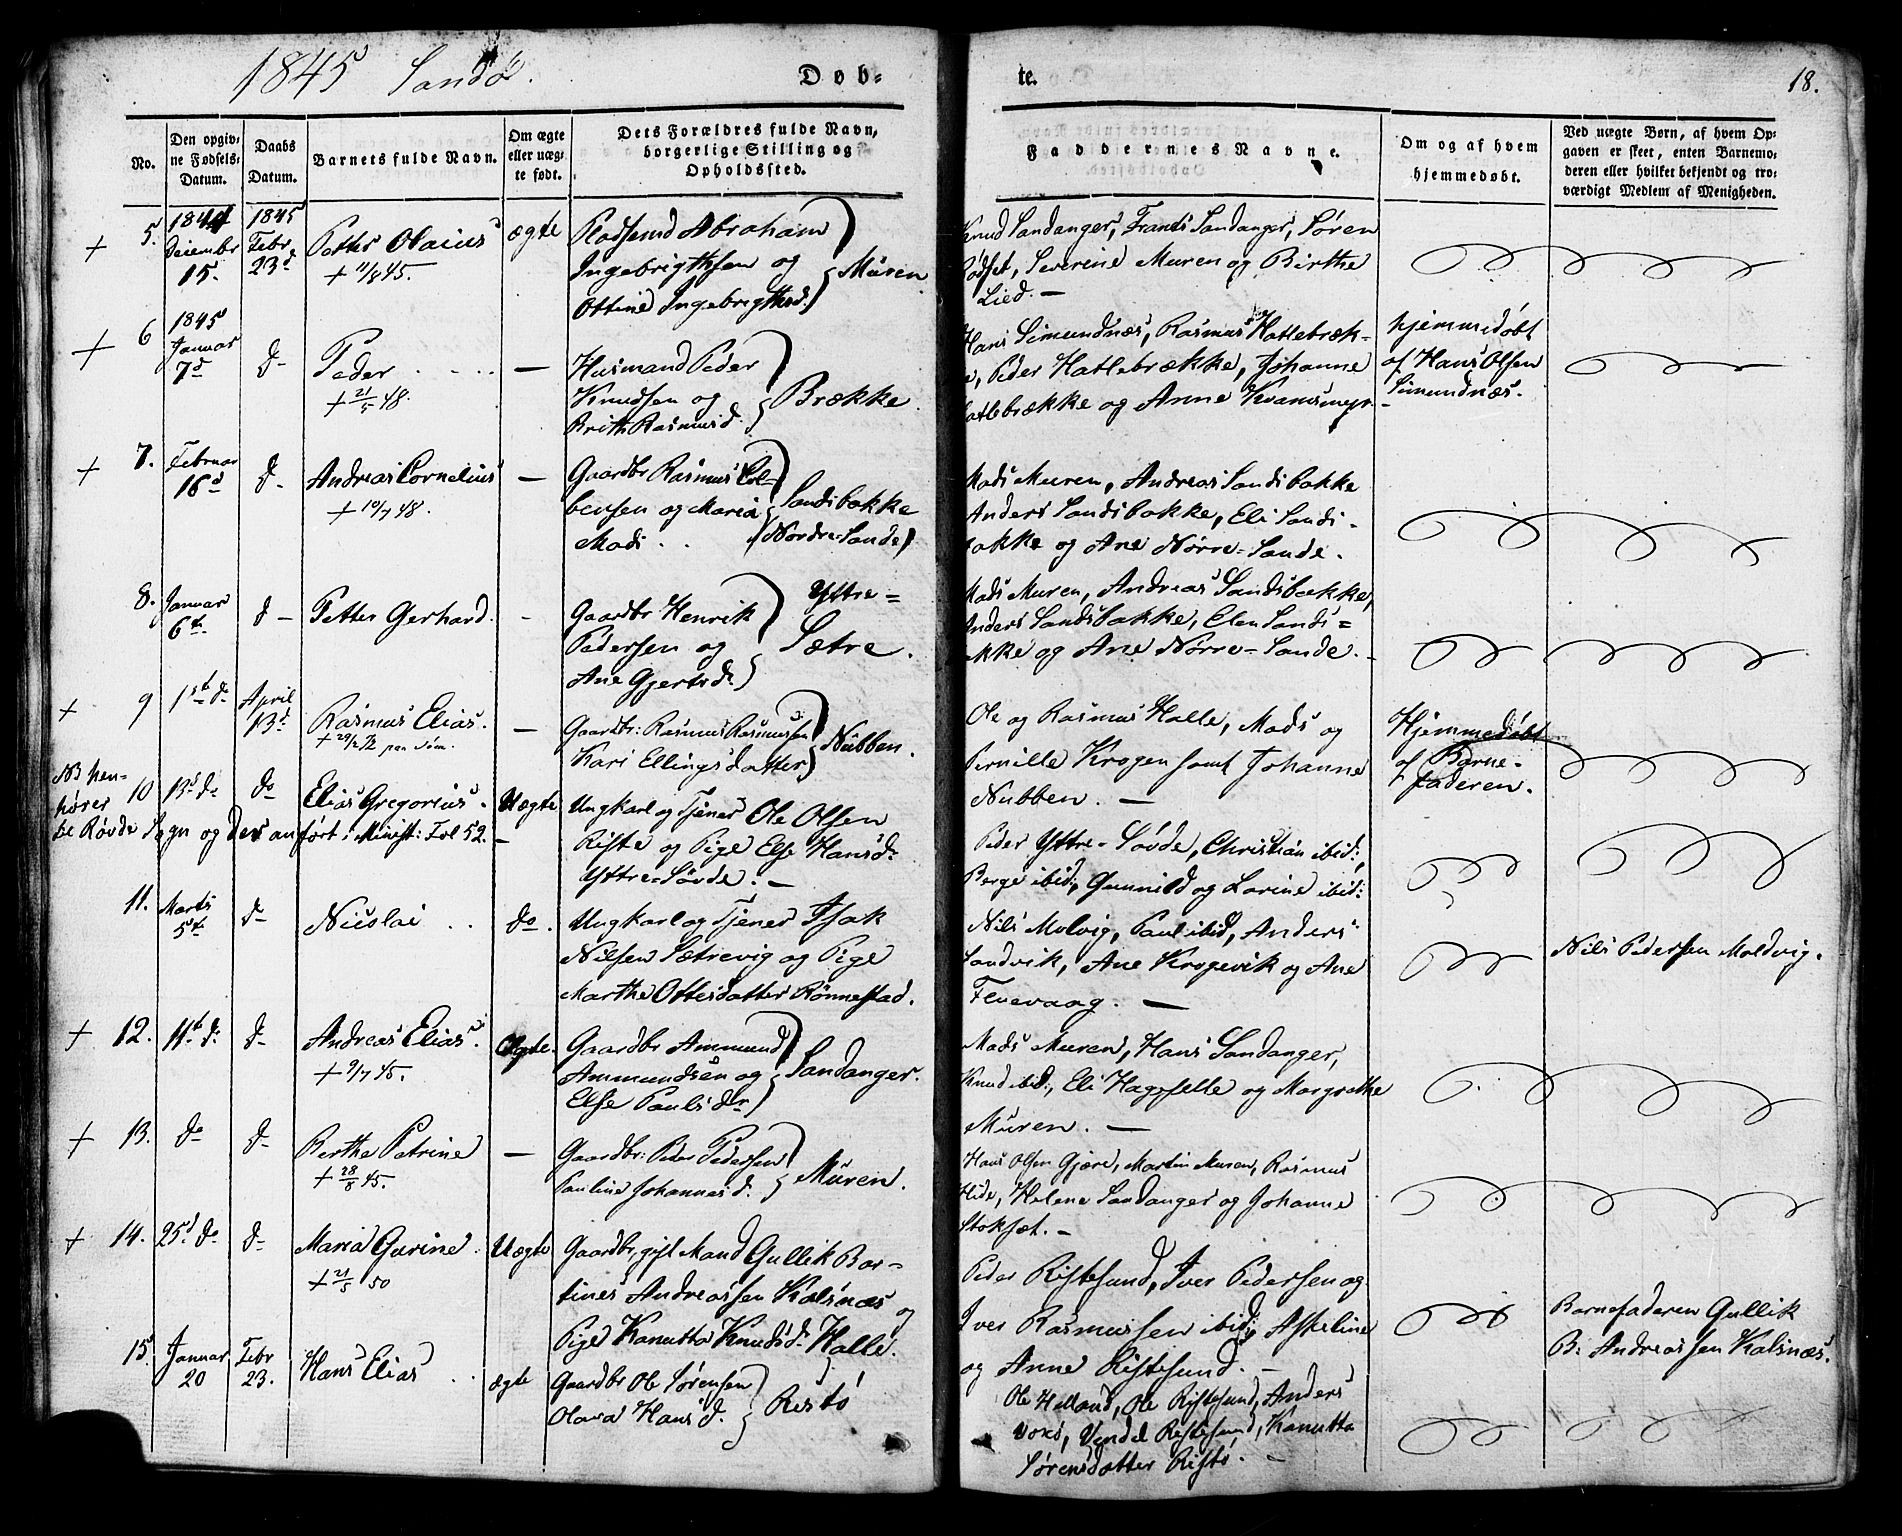 1845 Sandö.
Døb-
te.
18.
No.
Den opgiv-
ne Fødsels-
Datum.
Daabs
Datum.
Barnets fulde Navn.
Om ægte
eller uæg-
te født.
Dets Forældres fulde Navn,
borgerlige Stilling og
Opholdssted.
Faddernes Navne.
Om og af hvem
hjemmedøbt.
Ved uægte Børn, af hvem Op-
gaven er skeet, enten Barnemo-
deren eller hvilket bekjendt og tro-
værdigt Medlem af Menigheden.
+ 5.
1844
Deiembr
15.
1845
Febr
23d
Petter Olaius
+ 11/8 45.
ægte
Pladsemd Abraham
Ingebrigthsen og
Ottine Ingebrigthsd.
Muren
Knud Sandanger, Frants Sandanger, Søren
Rødset, Severine Muren og Birthe
Lied. —
+ 6
1845
Januar
7d
do
Peder
+ 21/5 48.
—
Husmand Peder
Knudsen og
Brith Rasmusd.
Brække.
Hans Simundnæs, Rasmus Hatlebræk-
ke, Peder Hatlebrække, Johanne
Hatlebrække og Anne Kvamsmyr.
hjemmedøbt
af Hans Olsen
Simundnæs.
+ 7.
Februar
16d
do
Andreas Cornelius
+ 10/7 48.
—
Gaardbr Rasmus Col-
bensen og Maria
Mads
Sandsbakke
(Nordre-Sande)
Mads Muren, Andreas Sandsbakke
Anders Sandsbakke, Eli Sands-
bakke og Ane Nörre-Sande.
8.
Januar
6te
do
Petter Gerhard.
—
Gaardbr Henrik
Pedersen og
Ane Gjertsdr
Yttre-
Sætre.
Mads Muren, Andreas Sandsbakke,
Anders Sandsbakke, Elen Sands-
bakke og Ane Nörre-Sande.
+ 9
1ste do
April
13d
Rasmus Elias.
+ 29/2 72
—
Gaardbr: Rasmus Rasmussen
Kari Ellingsdatter
Nubben.
Ole og Rasmus Halle, Mads og
Pernille Krogen samt Johanne
Nubben. —
Hjemmedöbt
af Barne-
faderen.
NB hen-
hører
til Røvde Sogn og der anført i Minist: Fol 52.
10
13d do
do
Elias Gregorius.
Uægte
Ungkarl og Tjener Ole Olsen
Riste og Pige Else Hansdr
Yttre-Søvde. —
Peder Yttre-Søvde, Christian ibid:,
Berge ibid:, Gunnild og Lorine ibid:
11.
Marts
5te
do
Nicolai
do.
Ungkarl og Tjener Isak
Nilsen Sætrevig og Pige
Marthe Ottesdatter Rönnestad.
Nils Molvig, Paul ibid, Anders
Sandvik, Ane Krogevik og Ane
Teuevaag. —
Nils Pedersen Moldvig.
+ 12.
11te do
do
Andreas Elias.
+ 9/7 45.
Ægte.
Gaardbr Ammund
Ammundsen og
Else Paulsdr
Sandanger.
Mads Muren, Hans Sandanger,
Knud ibid:, Eli Hagefelle og Margrethe
Muren. —
+ 13.
do
do
Berthe Petrine
+ 28/8 45.
—
Gaardbr: Peder Pedersen
Pauline Johannesd.
Muren.
Hans Olsen Gjære, Martin Muren, Rasmus
Hide, Helene Sandanger og Johanne
Stokset. —
+ 14.
25d do
do
Maria Gurine.
+ 21/5 50
Uægte
Gaardbr, gift Mand Gullik Bar-
tines Andreassen Kalsnæs og
Pige Kanutta Knudsdr Halle.
Peder Ristesund, Iver Pedersen og
Iver Rasmussen ibid:, Asteline
og Anne Ristesund. —
Barnefaderen Gullik
B: Andreassen Kalsnæs.
15.
Januar
20
Febr
23.
Hans Elias
ægte
Gaardbr Ole Sørensen
Olava Hansd.
Ristö
Ole Helland, Ole Ristesund, Anders
Voxö, Vendel Ristesund, Kanutta
Sørensdatter Ristö. —